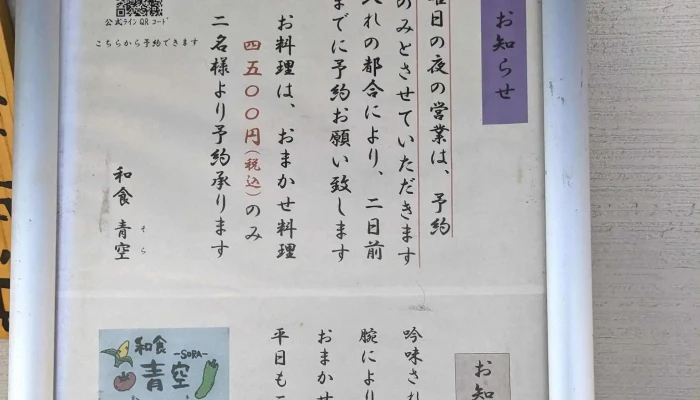 お知らせ
曜日の夜の営業は、予約
のみとさせていただきます
入れの都合により、二日前
までに予約お願い致します
お料理は、おまかせ料理
四五〇〇円(税込)のみ
二名様より予約承ります
公式ラインQRコード
こちらから予約できます
和食 青空
そら
お知
吟味され
腕により
おまかせ
平日も
和食
-SORA-
青空